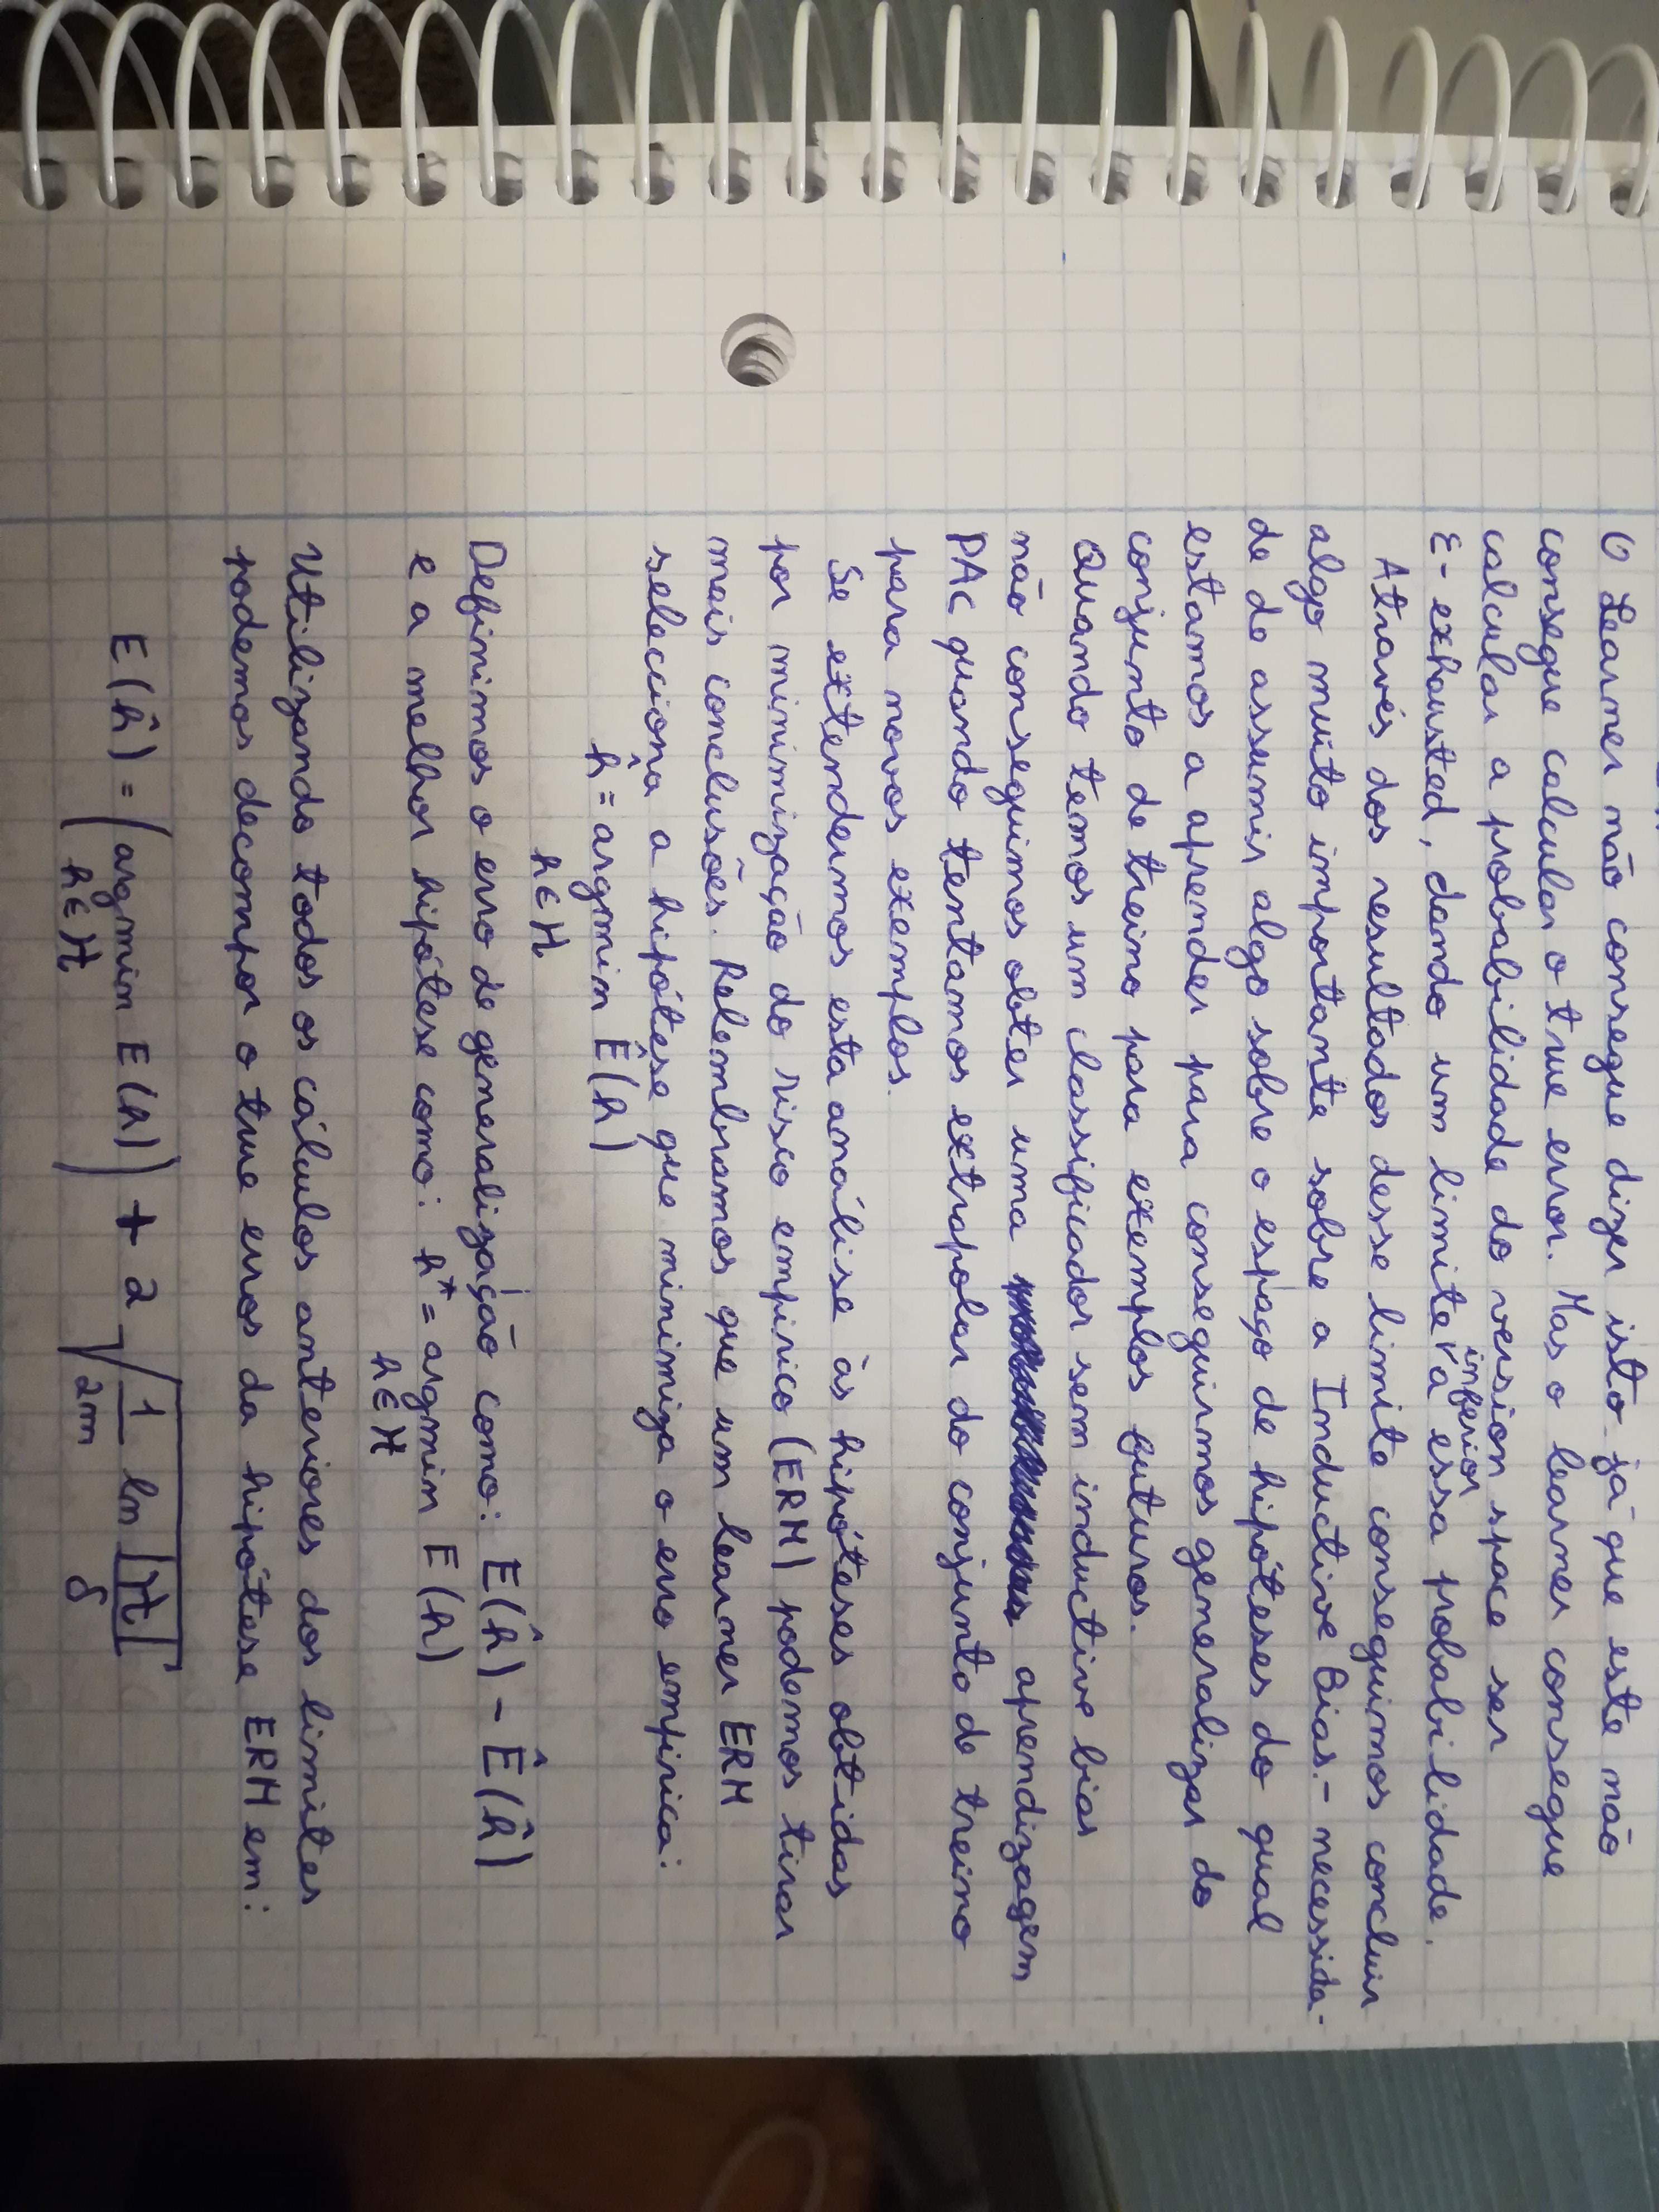 O Learner não consegue dizer isto já que este não
consegue calcular o true error. Mas o learner consegue
calcular a probabilidade do version space ser
inferior
ε-exhausted, dando um limite ˅ a essa probabilidade.
Através dos resultados desse limite conseguimos concluir
algo muito importante sobre a Inductive Bias - necessida-
de de assumir algo sobre o espaço de hipóteses do qual
estamos a aprender para conseguirmos generalizar do
conjunto de treino para exemplos futuros.
Quando temos um classificador sem inductive bias
não conseguimos obter uma aprendizagem
PAC quando tentamos extrapolar do conjunto de treino
para novos exemplos.
Se extendermos esta análise às hipóteses obtidas
por minimização do risco empirico (ERM) podemos tirar
mais conclusões. Relembramos que um learner ERM
selecciona a hipótese que minimiza o erro empirico:
ĥ = argmin Ê(h)
h∈H
Definimos o erro de generalização como: E(ĥ) - Ê(ĥ)
e a melhor hipótese como: h* = argmin E(h)
h∈H
Utilizando todos os cálculos anteriores dos limites
podemos decompor o true erros da hipótese ERM em:
E(ĥ) = (argmin E(h)) + 2 √(1/2m ln |H|/δ)
h∈H